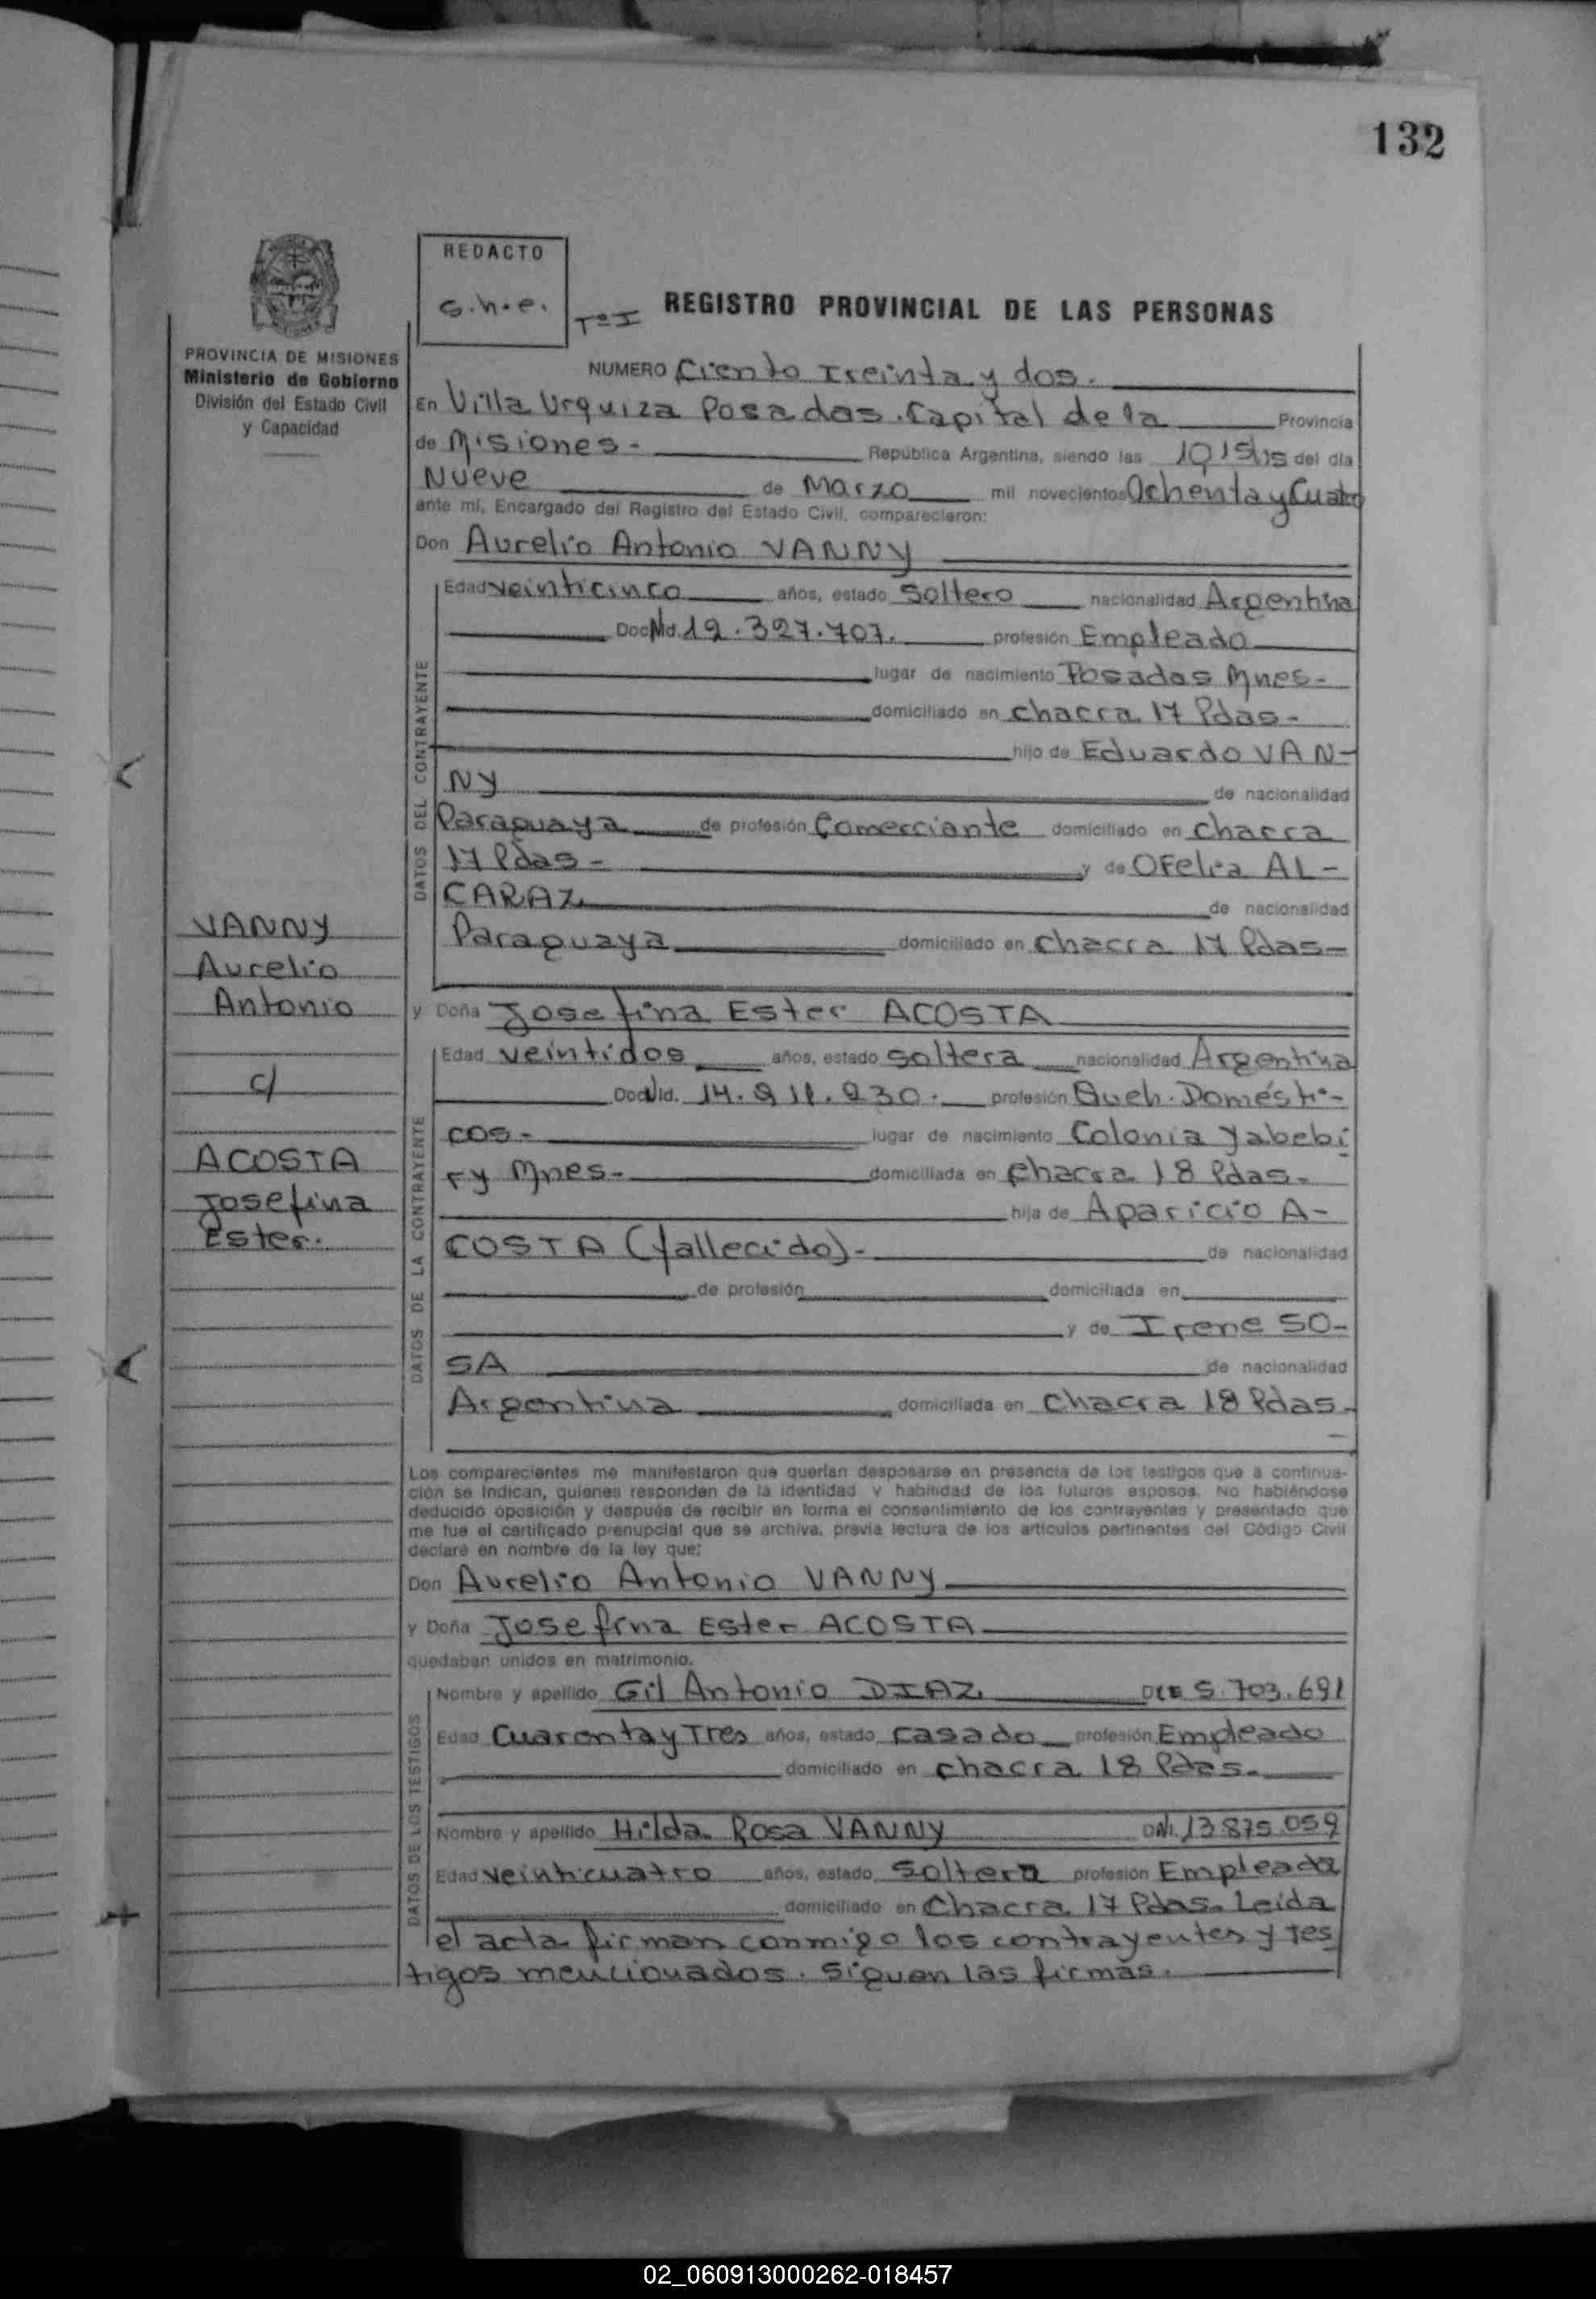 132
REDACTO
s.h.e.
Tº I REGISTRO PROVINCIAL DE LAS PERSONAS
PROVINCIA DE MISIONES
Ministerio de Gobierno
División del Estado Civil
y Capacidad
NUMERO Ciento Treinta y dos.
En Villa Urquiza Posadas. Capital de la Provincia
de Misiones - República Argentina, siendo las del día
Nueve de Marzo mil novecientos Ochenta y Cuatro
ante mí, Encargado del Registro del Estado Civil, comparecieron:
Don Aurelio Antonio VANNY
DATOS DEL CONTRAYENTE
Edad veinticinco años, estado Soltero nacionalidad Argentina
Doc Nd. 12.327.707. profesión Empleado
lugar de nacimiento Posadas Mnes-
domiciliado en chacra 17 Pdas-
hijo de Eduardo VAN-
NY de nacionalidad
Paraguaya de profesión Comerciante domiciliado en chacra
17 Pdas- y de OFelia AL-
CARAZ de nacionalidad
Paraguaya domiciliado en chacra 17 Pdas-
VANNY
Aurelio
Antonio
c/
ACOSTA
Josefina
Ester.
y Doña Josefina Ester ACOSTA
DATOS DE LA CONTRAYENTE
Edad veintidos años, estado soltera nacionalidad Argentina
Doc Nd. 14.211.230. profesión Queh. Domésti-
cos- lugar de nacimiento Colonia Yabebi
ry Mnes- domiciliada en chacra 18 Pdas-
hija de Aparicio A-
COSTA (fallecido)- de nacionalidad
de profesión domiciliada en
y de Irene SO-
SA de nacionalidad
Argentina domiciliada en chacra 18 Pdas-
Los comparecientes me manifestaron que querían desposarse en presencia de los testigos que a continua-
ción se indican, quienes responden de la identidad y habilidad de los futuros esposos. No habiéndose
deducido oposición y después de recibir en forma el consentimiento de los contrayentes y presentado que
me fue el certificado prenupcial que se archiva, previa lectura de los artículos pertinentes del Código Civil
declaré en nombre de la ley que:
Don Aurelio Antonio VANNY
y Doña Josefina Ester ACOSTA
quedaban unidos en matrimonio.
DATOS DE LOS TESTIGOS
Nombre y apellido Gil Antonio DIAZ 5.703.691
Edad Cuarenta y Tres años, estado casado profesión Empleado
domiciliado en chacra 18 Pdas-
Nombre y apellido Hilda Rosa VANNY DNI. 13.875.059
Edad veinticuatro años, estado soltera profesión Empleada
domiciliado en Chacra 17 Pdas- Leida
el acta firman conmigo los contrayentes y Tes
tigos mencionados. Siguen las firmas.
02_060913000262-018457